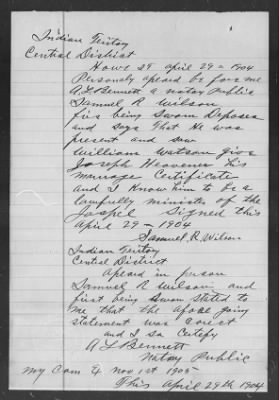 Indian Teritory
Central District
Howe IT april 29 - 1904
Personaly apeard be fore me
A L Bennett a notay Public
Samuel R Wilson
firs being Sworn Deposes
and Says That He was
present and saw
William Watson give
Joseph Heavener his
marriage Certificate
and I Know him to be a
lawfully minister of the
Gospel Signed this
april 29 - 1904
Samuel, R. Wilson
Indian Teritory
Central District
Apeard in person
Samuel R Wilson and
first being Sworn stated to
me that the afore going
statement was Corect
and I so Certify
A L Bennett
Notay Public
my Com Ex nov 1st 1905
This April 29th 1904